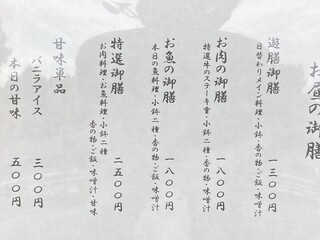 お昼の御膳
遊膳御膳 一三〇〇円
日替わりメイン料理・小鉢二種・香の物・ご飯・味噌汁
お肉の御膳 一八〇〇円
特選牛のステーキ重・小鉢二種・香の物・味噌汁
お魚の御膳 一八〇〇円
本日の魚料理・小鉢二種・香の物・ご飯・味噌汁
特選御膳 二五〇〇円
お肉料理・お魚料理・小鉢二種・香の物・ご飯・味噌汁・甘味
甘味単品
バニラアイス 三〇〇円
本日の甘味 五〇〇円